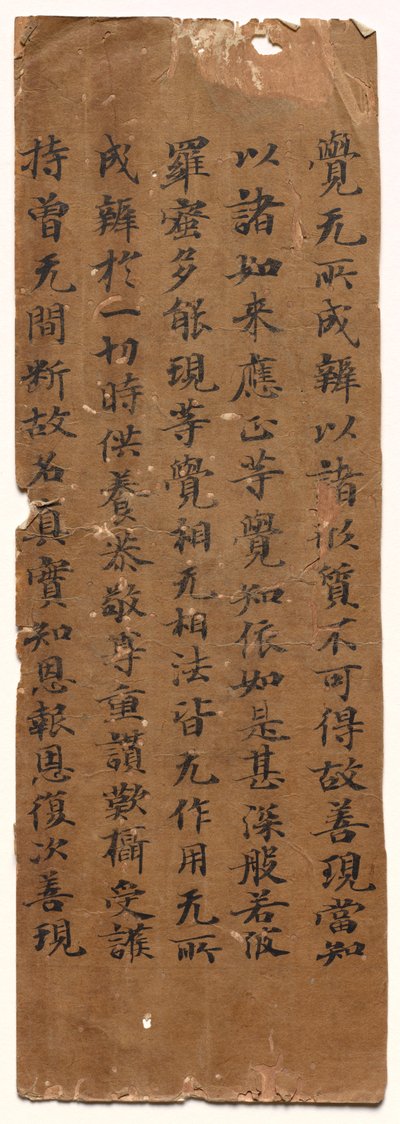 覺无所成辦以諸形質不可得故善現當知
以諸如来應正等覺知依如是甚深般若波
羅蜜多能現等覺相无相法皆无作用无所
成辦於一切時供養恭敬尊重讃歎攝受護
持曽无間断故名真實知恩報恩復次善現